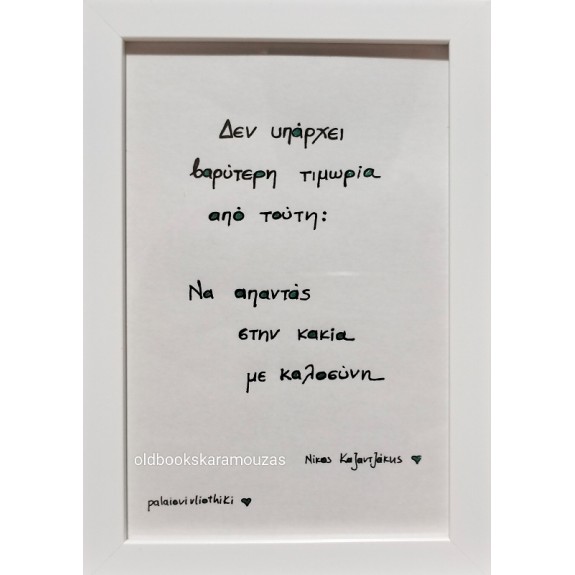 Δεν υπάρχει
βαρύτερη τιμωρία
από τούτη:
Να απαντάς
στην κακία
με καλοσύνη
oldbookskaramouzas
Νίκος Καζαντζάκης
palaiovivliothiki